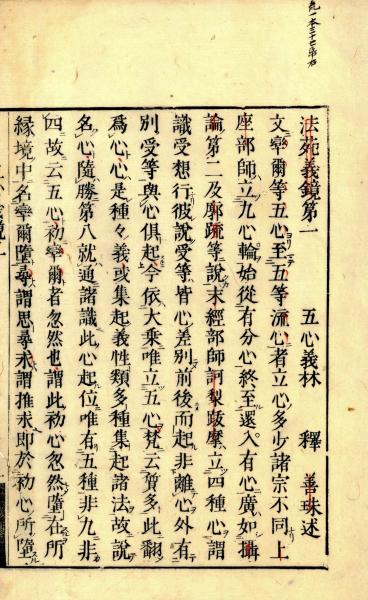 法苑義鏡第一　五心義林　釋　善珠述
文率爾等五心至五等流心者立心多少諸宗不同上
座部師立九心輪始從有分心終至還入有心廣如攝
論第二及廓疏等說末經部師訶梨跋摩立四種心謂
識受想行彼說受等皆心差別前後而起非離心外有
別受等與心俱起今依大乘唯立五心梵云質多此翻
爲心心是種々義或集起義性類多種集起諸法故說
名心隨勝第八就通諸識此心起位唯有五種非九非
四故云五心初率爾者忽然也謂此初心忽然墮在所
緣境中名率爾墮尋謂思尋求謂推求即於初心所墮